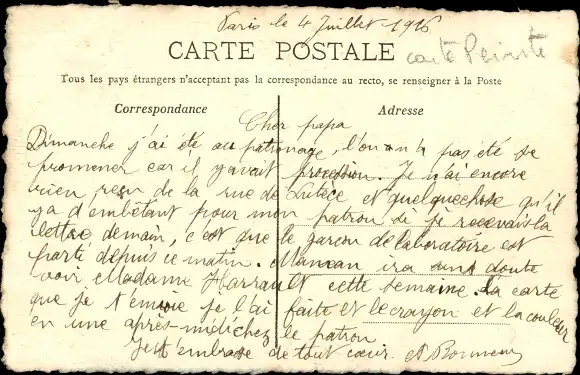 Paris le 4 Juillet 1916
CARTE POSTALE
carte Peinte
Tous les pays étrangers n'acceptant pas la correspondance au recto, se renseigner à la Poste
Correspondance
Adresse
Cher papa
Dimanche j'ai été au patronage, l'on n'a pas été se
promener car il y avait procession. Je n'ai encore
rien reçu de la rue de Lutèce et quelquechose qu'il
y a d'embêtant pour mon patron si je recevais la
lettre demain, c'est que le garçon de laboratoire est
parti depuis ce matin. Maman ira sans doute
voir Madame Harrault cette semaine. La carte
que je t'envoie je l'ai faite et le crayon et la couleur
en une après-midi chez le patron
Je t'embrasse de tout cœur.